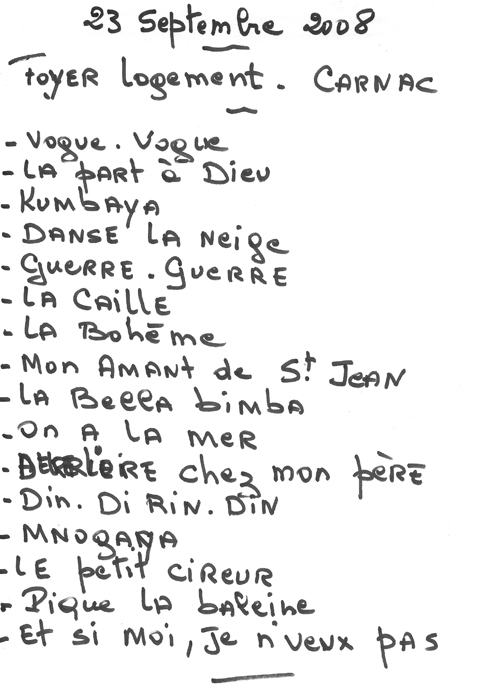 23 Septembre 2008
FOYER Logement. CARNAC
- Vogue. Vogue
- LA PART à Dieu
- KUMBAYA
- DANSE LA Neige
- GUERRE. GUERRE
- LA CAILLE
- LA Bohême
- Mon AMANT de St JEAN
- LA Bella bimba
- On A LA MER
- chez mon pÈRE
- Din. Di Rin. Din
- MNOGAYA
- LE petit cireur
- Pique LA baleine
- Et si moi, je n'veux pas